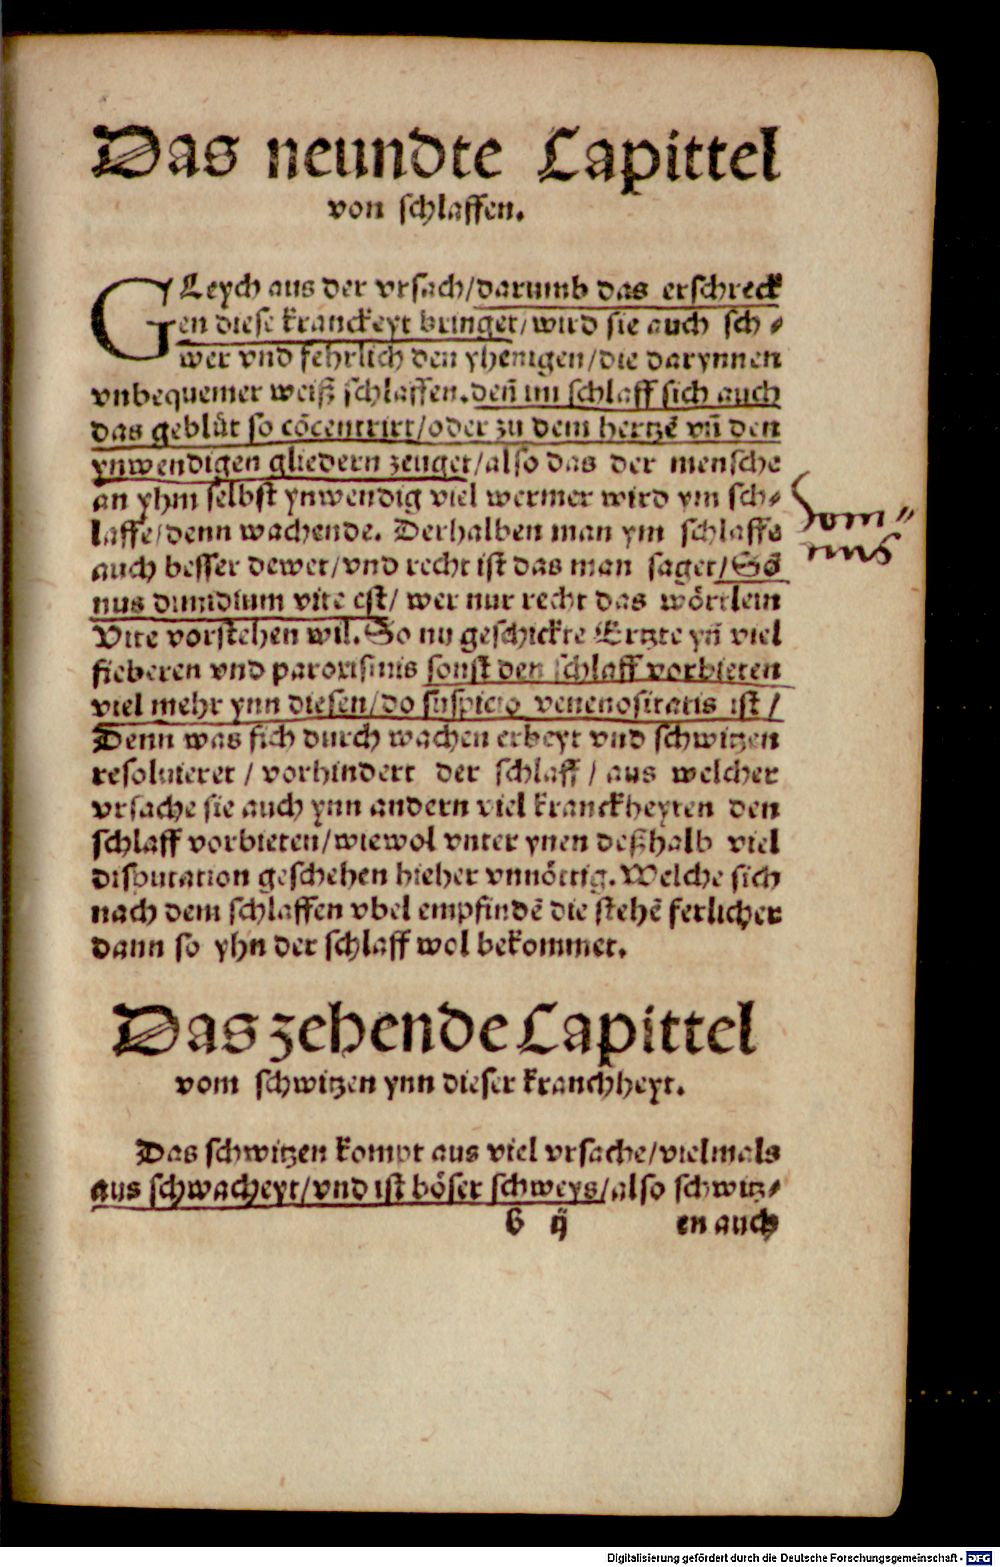 Das neundte Capittel
von schlaffen.
GLeych aus der vrsach/darumb das erschreck
en diese kranckeyt bringet/wird sie auch sch⸗
wer vnd fehrlich den yhenigen/die darynnen
vnbequemer weiß schlaffen.deñ im schlaff sich auch
das geblůt so cõcentrirt/oder zu dem hertzẽ vñ den
ynwendigen gliedern zeuget/also das der mensche
an yhm selbst ynwendig viel wermer wird ym sch⸗
laffe/denn wachende. Derhalben man ym schlaffe
auch besser dewet/vnd recht ist das man saget/Sõ
nus dimidium vite est/ wer nur recht das wörtlein
Vite vorstehen wil. So nu geschickte Ertzte yñ viel
fieberen vnd paroxismis sonst den schlaff vorbieten
viel mehr ynn diesen/do suspicio venenositatis ist/
Denn was sich durch wachen erbeyt vnd schwitzen
resoluieret / vorhindert der schlaff / aus welcher
vrsache sie auch ynn andern viel kranckheyten den
schlaff vorbieten/wiewol vnter ynen deßhalb viel
disputation geschehen hieher vnnöttig. Welche sich
nach dem schlaffen vbel empfindẽ die stehẽ ferlicher
dann so yhn der schlaff wol bekommet.
Som⸗
nus
Das zehende Capittel
vom schwitzen ynn dieser kranchheyt.
Das schwitzen kompt aus viel vrsache/vielmals
aus schwacheyt/vnd ist böser schweys/also schwitz⸗
b ij en auch
Digitalisierung gefördert durch die Deutsche Forschungsgemeinschaft - DFG